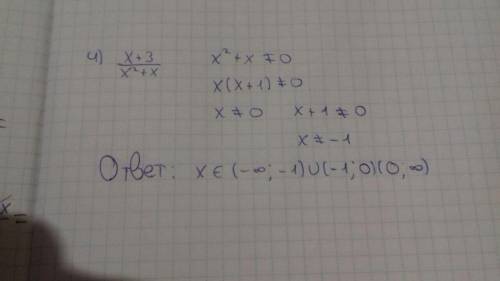 4) x+3 / x²+x x²+x ≠ 0
x(x+1) ≠ 0
x ≠ 0 x+1 ≠ 0
x ≠ -1
Ответ: x ∈ (-∞; -1)∪(-1; 0)(0, ∞)
=
x =